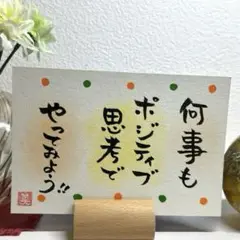 何事も
ポジティブ
思考で
やってみよう!!